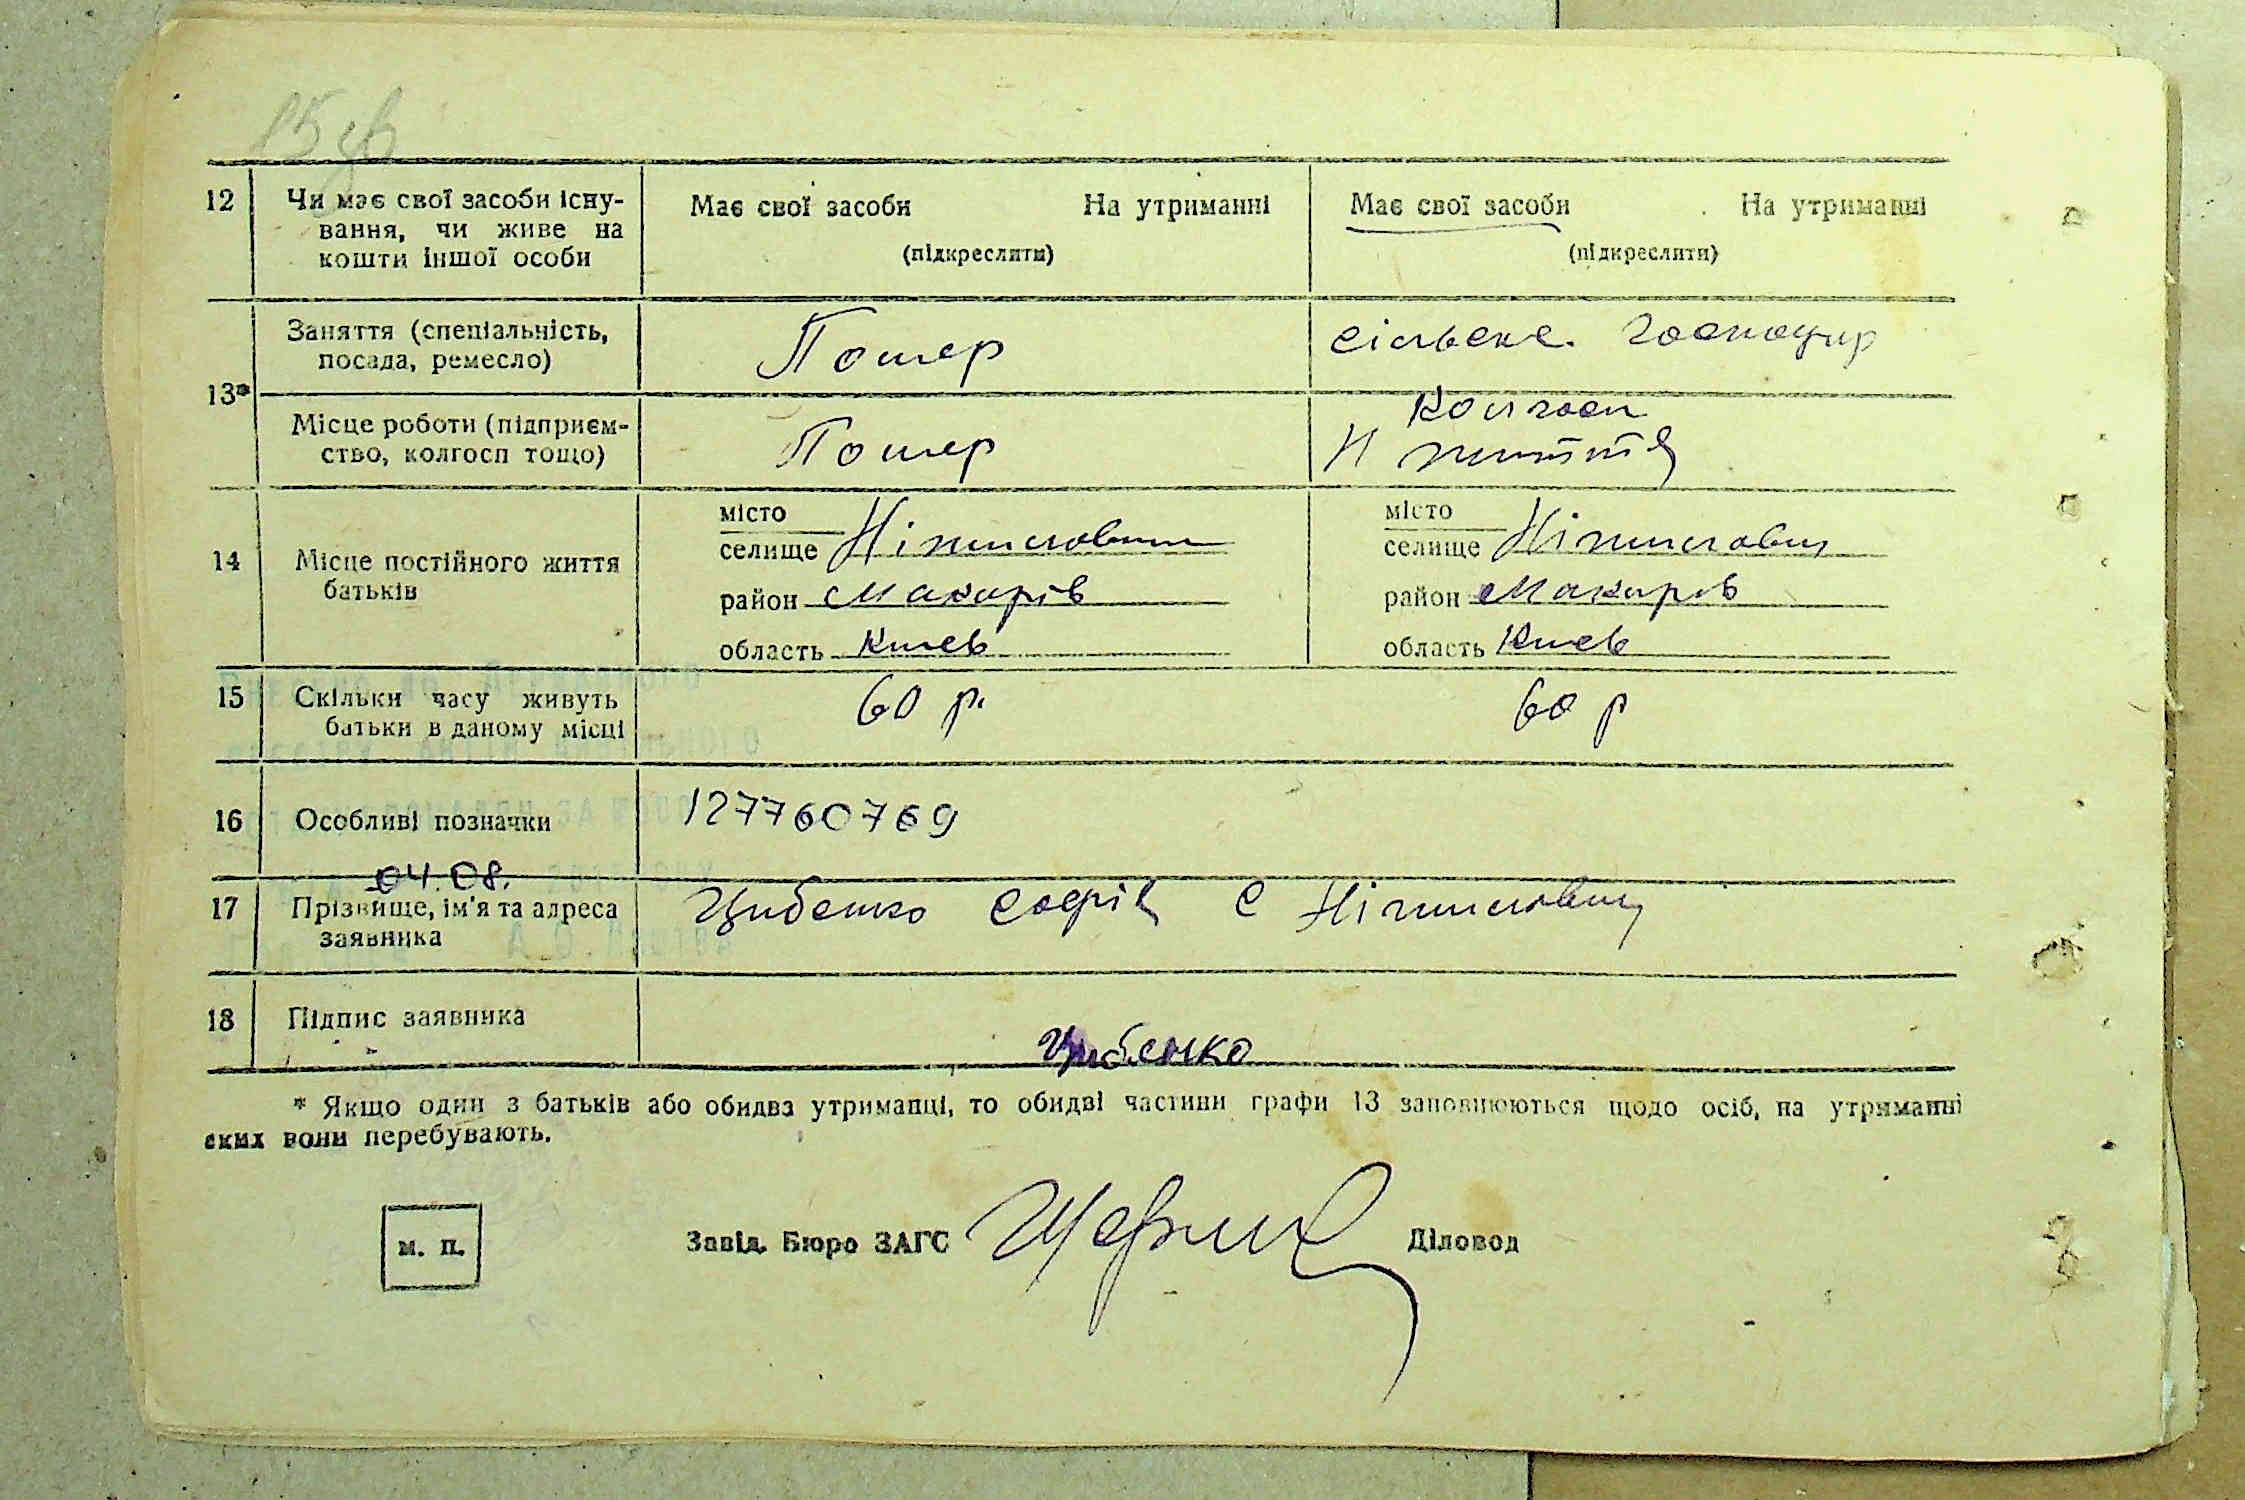 12 Чи має свої засоби існу- Має свої засоби На утриманні Має свої засоби На утриманні
вання, чи живе на
кошти іншої особи (підкреслити) (підкреслити)
Заняття (спеціальність, Помер сільськ. господар
посада, ремесло)
13*
Місце роботи (підприєм- Помер Колгосп
ство, колгосп тощо) життя
місто місто
14 Місце постійного життя селище Ніжиловичі селище Ніжиловичі
батьків район Макарів район Макарів
область Киев область Киев
15 Скільки часу живуть 60 р. 60 р
батьки в даному місці
16 Особливі позначки 127760769
04.08.
17 Прізвище, ім'я та адреса Цибенко Софія с Ніжиловичі
заявника
18 Підпис заявника Цибенко
* Якщо один з батьків або обидва утриманці, то обидві частини графи 13 заповнюються щодо осіб, на утриманні
яких вони перебувають.
м. п. Завід. Бюро ЗАГС Діловод